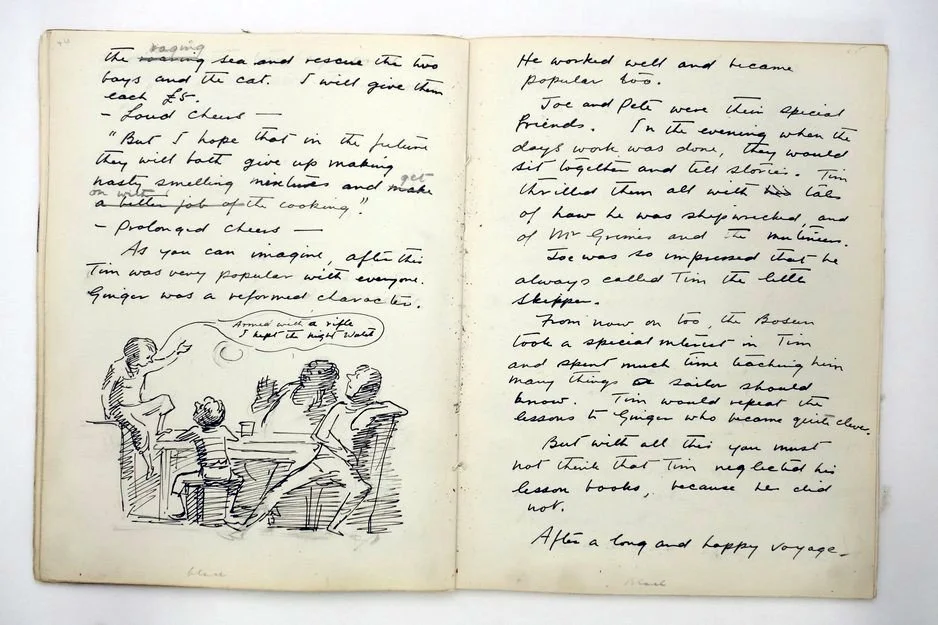 raging
the roaring sea and rescue the two
boys and the cat. I will give them
each £5.
- Loud cheers -
"But I hope that in the future
they will both give up making
nasty smelling mixtures and make
get
on with
a better job of the cooking".
- Prolonged cheers -
As you can imagine, after this
Tim was very popular with everyone.
Ginger was a reformed character.
Armed with a rifle
I kept the night watch
black
He worked well and became
popular too.
Joe and Pete were their special
friends. In the evening when the
days work was done, they would
sit together and tell stories. Tim
thrilled them all with his tales
of how he was shipwrecked, and
of Mr Grimes and the mutineers.
Joe was so impressed that he
always called Tim the little
skipper.
From now on too, the Bosun
took a special interest in Tim
and spent much time teaching him
many things a sailor should
know. Tim would repeat the
lessons to Ginger who became quite clever.
But with all this you must
not think that Tim neglected his
lesson books, because he did
not.
After a long and happy voyage-
Black